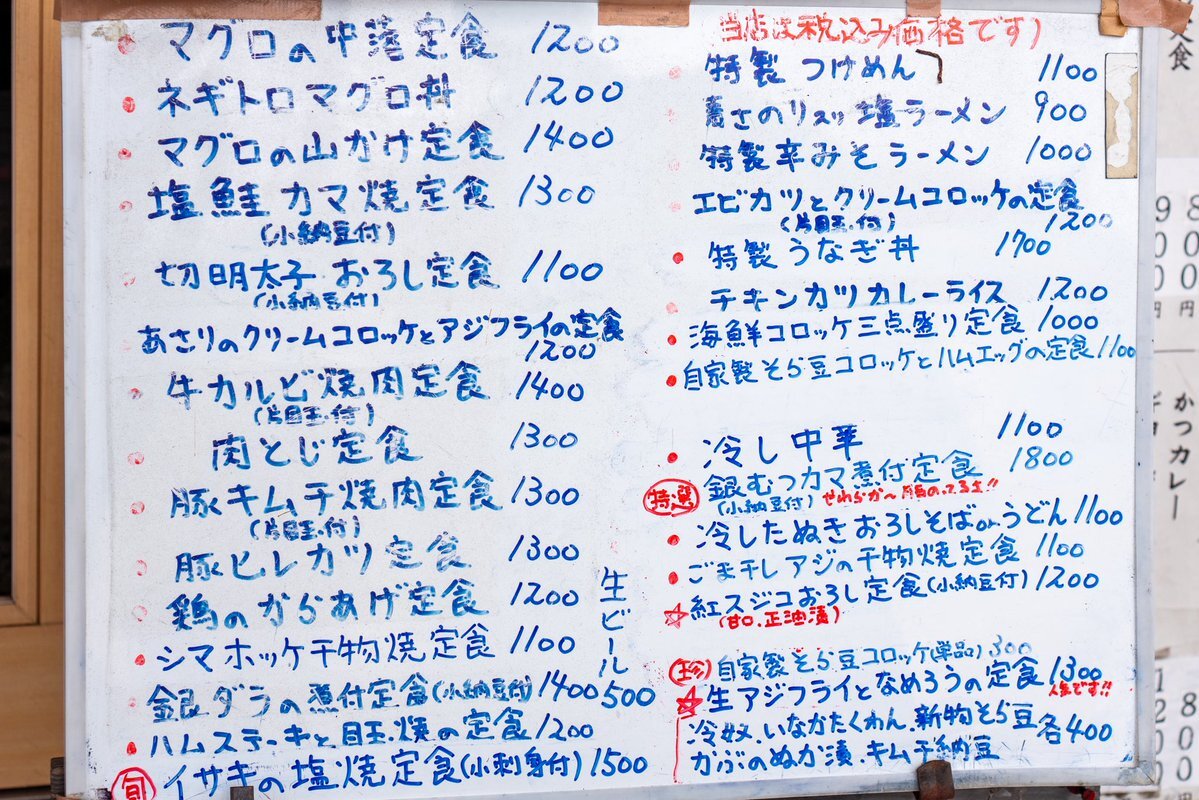 マグロの中落定食 1200
ネギトロマグロ丼 1200
マグロの山かけ定食 1400
塩鮭カマ焼定食 1300
(小納豆付)
切明太子おろし定食 1100
(小納豆付)
あさりのクリームコロッケとアジフライの定食
1200
牛カルビ焼肉定食 1400
(片目玉付)
肉とじ定食 1300
豚キムチ焼肉定食 1300
(片目玉付)
豚ヒレカツ定食 1300
鶏のからあげ定食 1200
シマホッケ干物焼定食 1100
銀ダラの煮付定食(小納豆付) 1400
ハムステーキと目玉焼の定食 1200
旬 イサキの塩焼定食(小刺身付) 1500
生ビール
500
当店は税込み価格です)
特製つけめん 1100
青さのリスッ塩ラーメン 900
特製辛みそラーメン 1000
エビカツとクリームコロッケの定食
(片目玉付) 1200
特製うなぎ丼 1700
チキンカツカレーライス 1200
海鮮コロッケ三点盛り定食 1000
自家製そら豆コロッケとハムエッグの定食 1100
冷し中華 1100
特選 銀むつカマ煮付定食 1800
(小納豆付) やわらか〜脂のってるよ!!
冷したぬきおろしそばorうどん 1100
ごま干しアジの干物焼定食 1100
☆紅スジコおろし定食(小納豆付) 1200
(甘口.正油漬)
珍 自家製そら豆コロッケ(単品) 300
☆生アジフライとなめろうの定食 1300
人気です!!
冷奴.いなかたくわん.新物そら豆 各400
かぶのぬか漬.キムチ納豆
定食
かつカレー